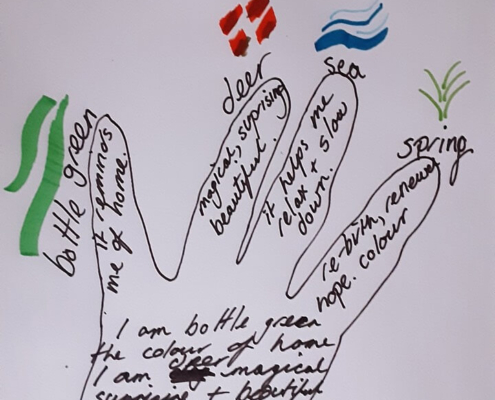 bottle green
it reminds
me of home.
deer
magical, suprising
beautiful.
sea
it helps me
relax + slow
down.
spring
re-birth, renewal
hope. colour
I am bottle green
the colour of home
I am deer magical
suprising + beautiful